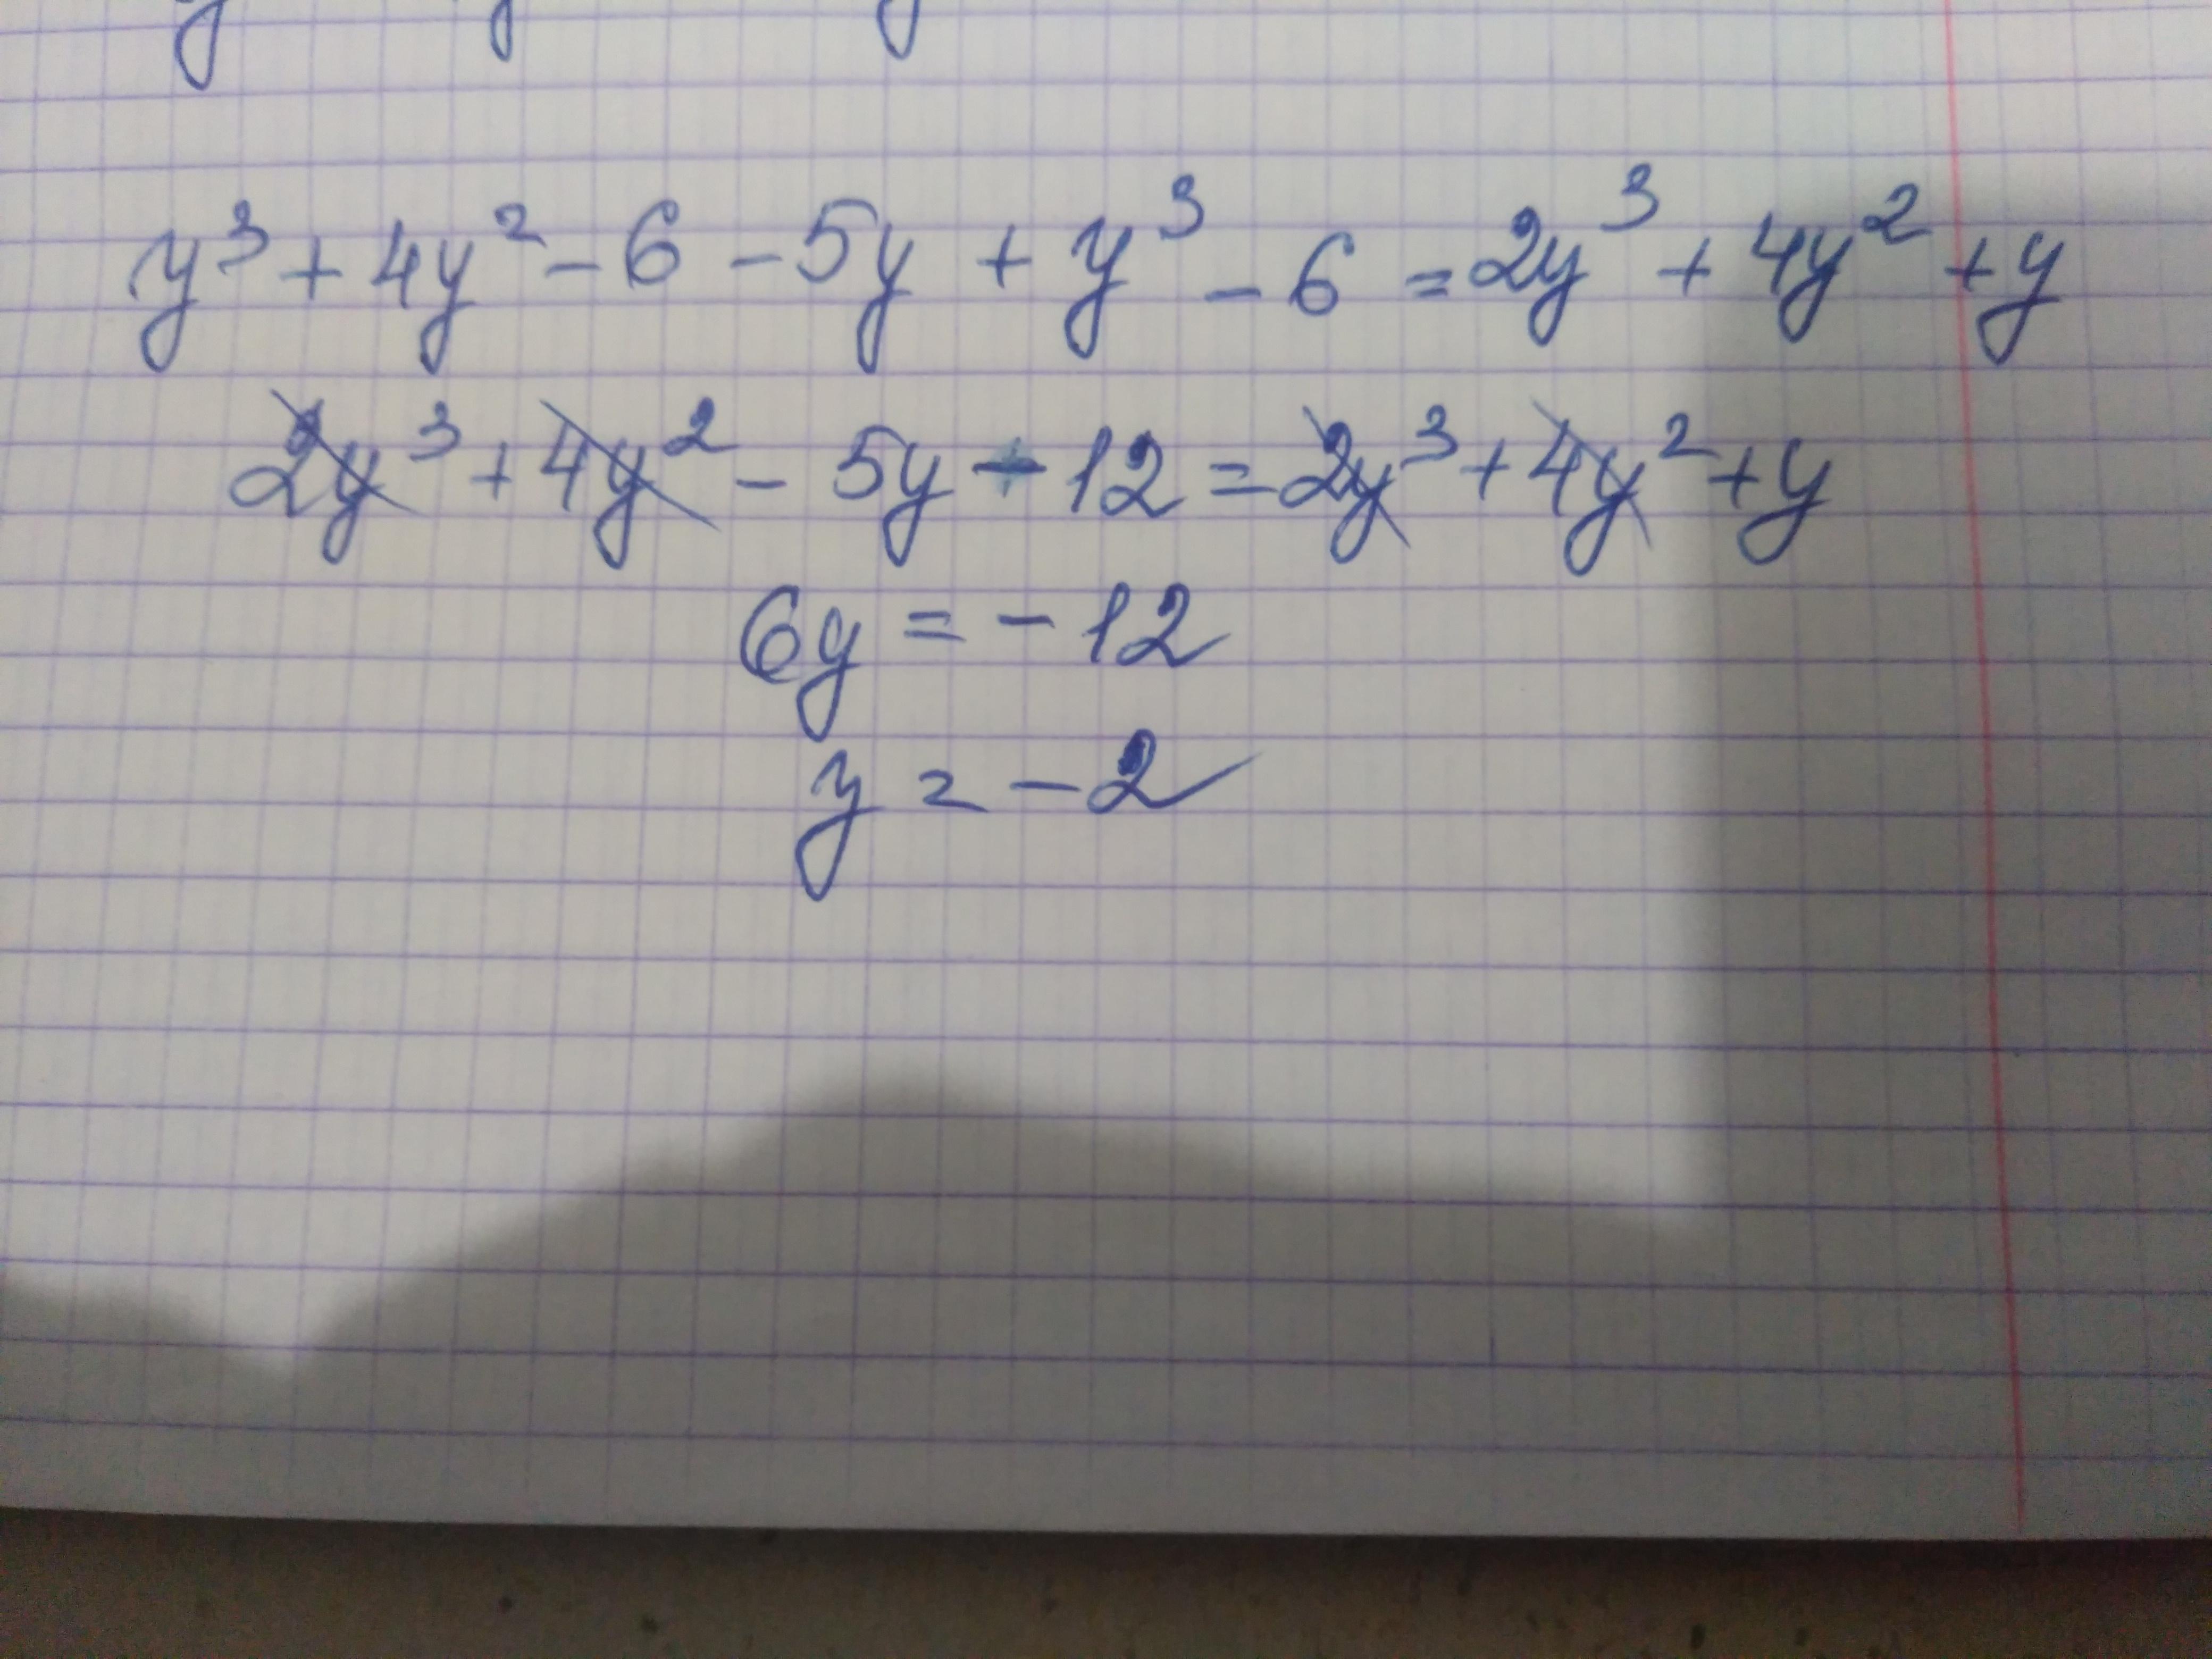 y³ + 4y² - 6 - 5y + y³ - 6 = 2y³ + 4y² + y
2y³ + 4y² - 5y - 12 = 2y³ + 4y² + y
6y = - 12
y = - 2